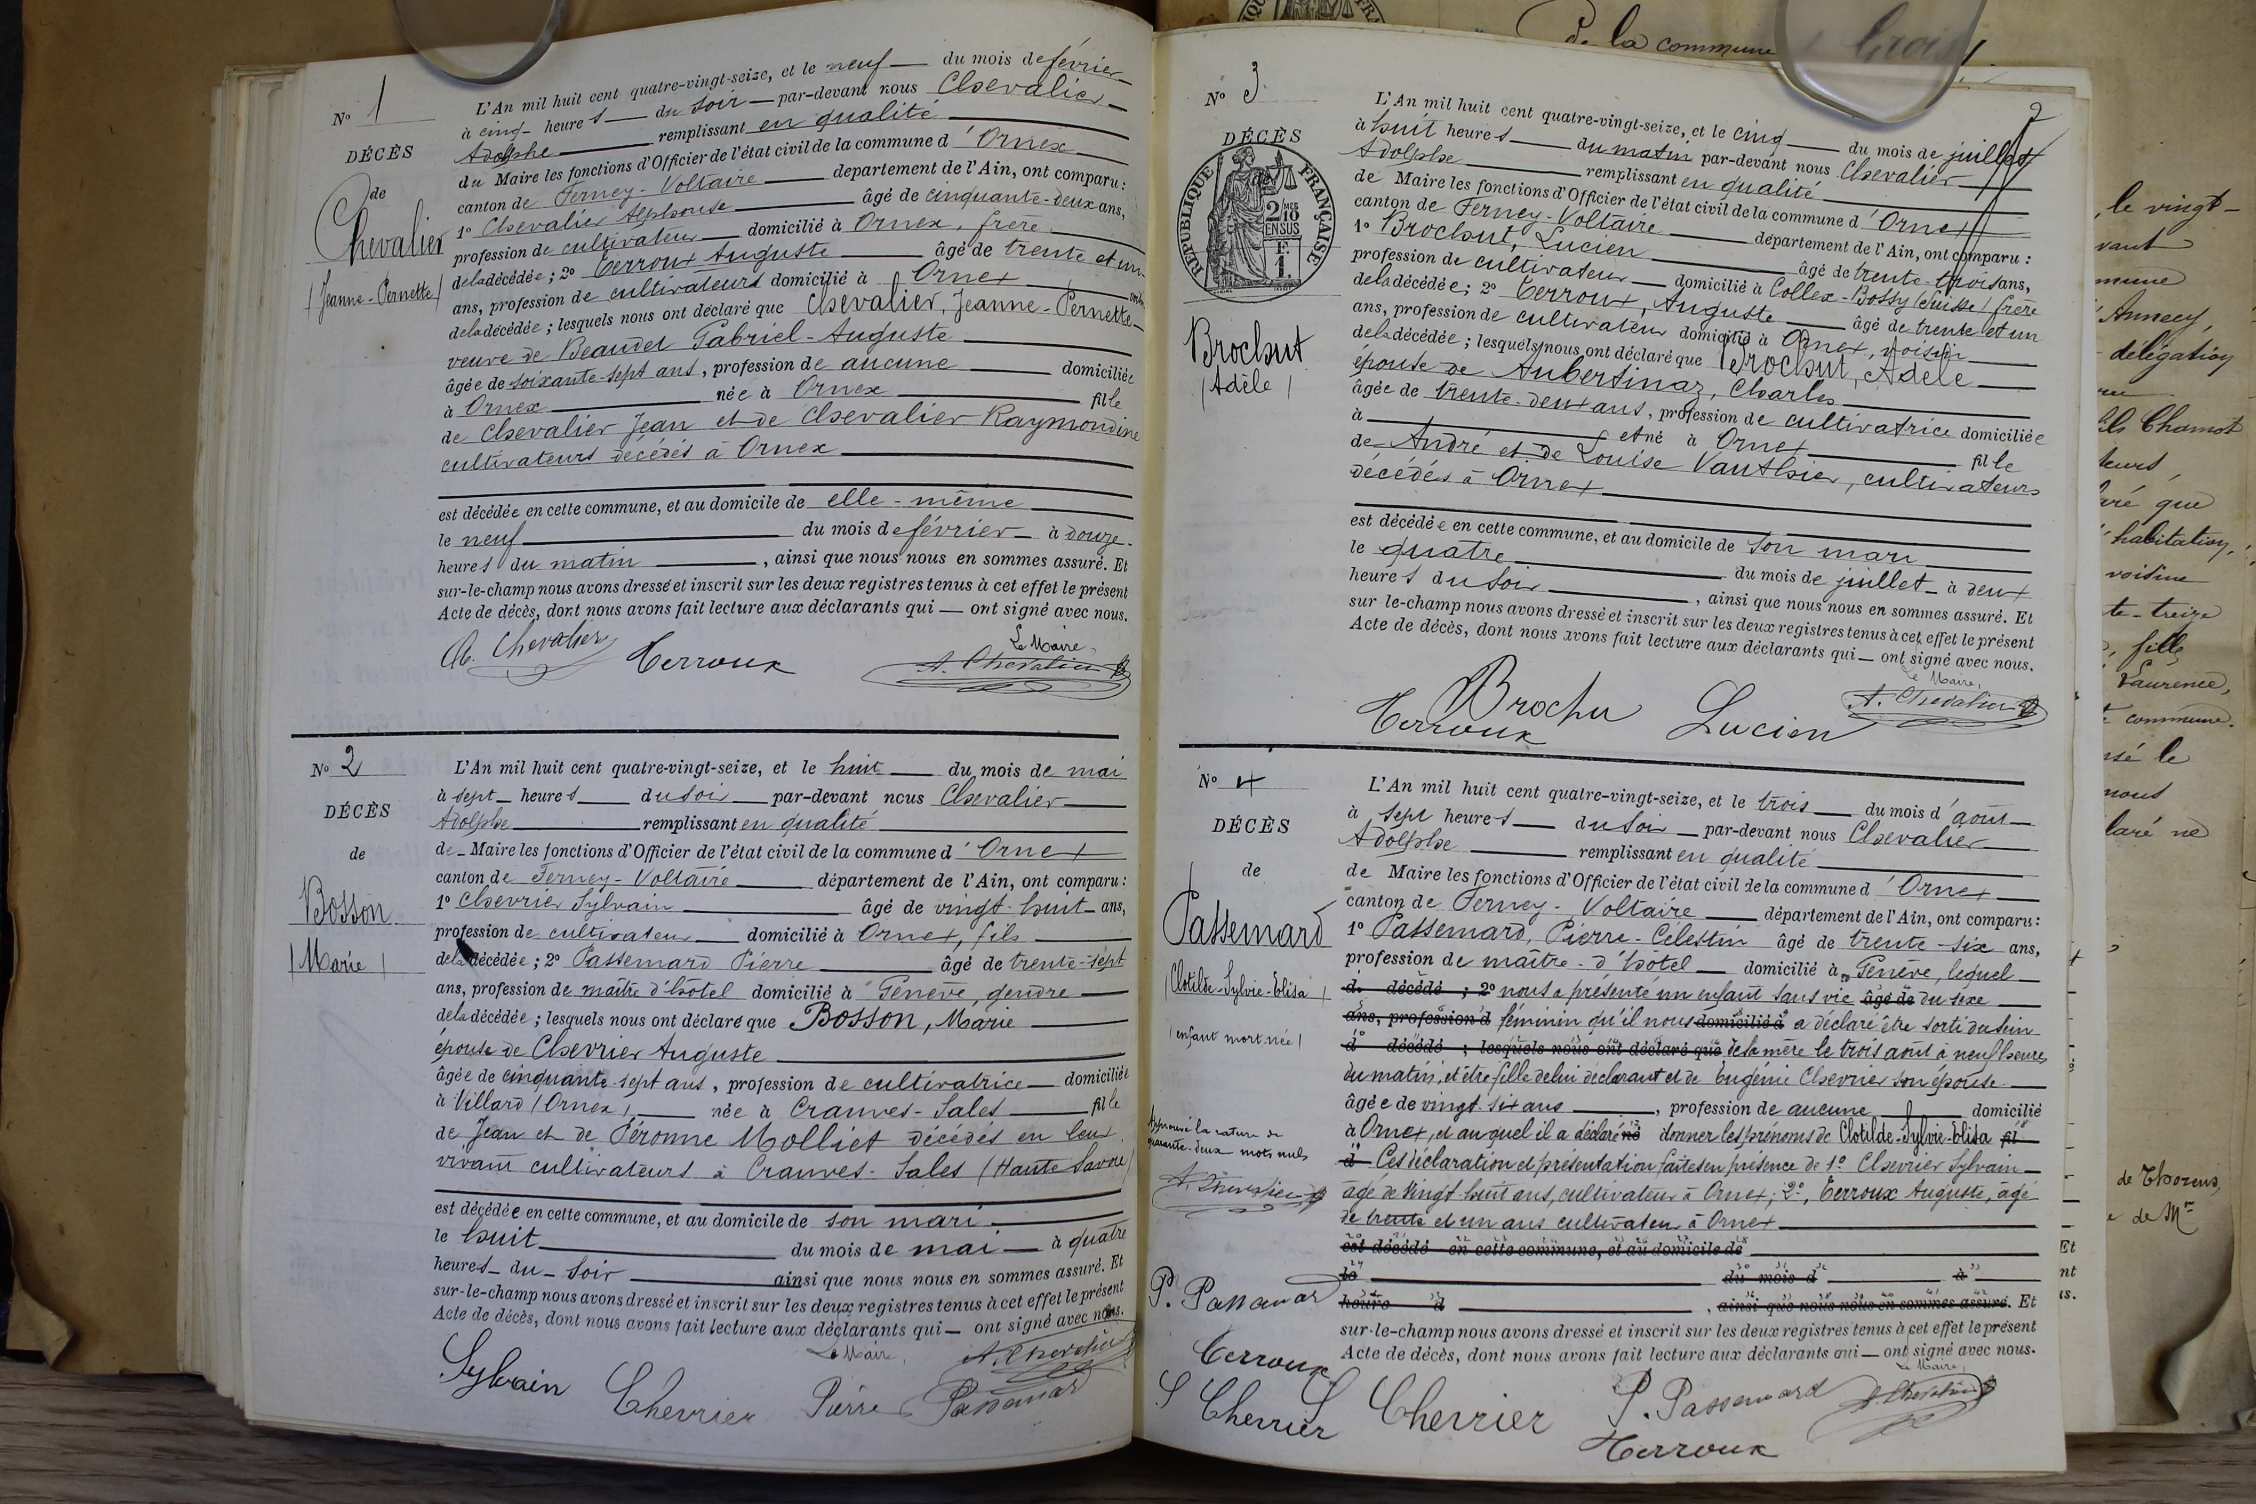 N° 1
DÉCÈS
de
Chevalier
(Jeanne-Pernette)
L'An mil huit cent quatre-vingt-seize, et le neuf du mois de février
à cinq heures du soir par-devant nous Chevalier
Adolphe remplissant en qualité
du Maire les fonctions d'Officier de l'état civil de la commune d'Ornex
canton de Ferney-Voltaire département de l'Ain, ont comparu :
1° Chevalier Alphonse âgé de cinquante-deux ans,
profession de cultivateur domicilié à Ornex, frère
de la décédée ; 2° Terroux Auguste âgé de trente et un
ans, profession de cultivateurs domicilié à Ornex
de la décédée ; lesquels nous ont déclaré que Chevalier, Jeanne-Pernette
veuve de Beaudet Gabriel-Auguste
âgée de soixante-sept ans, profession de aucune domiciliée
à Ornex née à Ornex fille
de Chevalier Jean et de Chevalier Raymondine
cultivateurs décédés à Ornex
est décédée en cette commune, et au domicile de elle-même
le neuf du mois de février à douze
heures du matin, ainsi que nous nous en sommes assuré. Et
sur-le-champ nous avons dressé et inscrit sur les deux registres tenus à cet effet le présent
Acte de décès, dont nous avons fait lecture aux déclarants qui ont signé avec nous.
Le Maire,
Chevalier Terroux A. Chevalier
N° 2
DÉCÈS
de
Bosson
(Marie)
L'An mil huit cent quatre-vingt-seize, et le huit du mois de mai
à sept heures du soir par-devant nous Chevalier
Adolphe remplissant en qualité
de Maire les fonctions d'Officier de l'état civil de la commune d'Ornex
canton de Ferney-Voltaire département de l'Ain, ont comparu :
1° Chevrier Sylvain âgé de vingt-huit ans,
profession de cultivateur domicilié à Ornex, fils
de la décédée ; 2° Passemard Pierre âgé de trente-sept
ans, profession de maître d'hôtel domicilié à Genève, gendre
de la décédée ; lesquels nous ont déclaré que Bosson, Marie
épouse de Chevrier Auguste
âgée de cinquante-sept ans, profession de cultivatrice domiciliée
à Villard (Ornex) née à Cranves-Sales fille
de Jean et de Péronne Molliet décédés en leur
vivant cultivateurs à Cranves-Sales (Haute Savoie)
est décédée en cette commune, et au domicile de son mari
le huit du mois de mai à quatre
heures du soir ainsi que nous nous en sommes assuré. Et
sur-le-champ nous avons dressé et inscrit sur les deux registres tenus à cet effet le présent
Acte de décès, dont nous avons fait lecture aux déclarants qui ont signé avec nous.
Le Maire, A. Chevalier
Sylvain Chevrier Pierre Passemard
de la commune
2
N° 3
DÉCÈS
RÉPUBLIQUE FRANÇAISE
2/10 EN SUS
Brochut
(Adèle)
L'An mil huit cent quatre-vingt-seize, et le cinq du mois de juillet
à huit heures du matin par-devant nous Chevalier
Adolphe remplissant en qualité
de Maire les fonctions d'Officier de l'état civil de la commune d'Ornex
canton de Ferney-Voltaire département de l'Ain, ont comparu :
1° Brochut, Lucien âgé de trente-trois ans,
profession de cultivateur domicilié à Collex-Bossy (Suisse) frère
de la décédée ; 2° Terroux, Auguste âgé de trente et un
ans, profession de cultivateur domicilié à Ornex, voisin
de la décédée ; lesquels nous ont déclaré que Brochut, Adèle
épouse de Aubersinaz, Charles
âgée de trente-deux ans, profession de cultivatrice domiciliée
à et né à Ornex fille
de André et de Louise Vauthier, cultivateurs
décédés à Ornex
est décédée en cette commune, et au domicile de son mari
le quatre du mois de juillet à deux
heures du soir, ainsi que nous nous en sommes assuré. Et
sur-le-champ nous avons dressé et inscrit sur les deux registres tenus à cet effet le présent
Acte de décès, dont nous avons fait lecture aux déclarants qui ont signé avec nous.
Le Maire,
Brochu Lucien A. Chevalier
Terroux
N° 4
DÉCÈS
de
Passemard
(Clotilde-Sylvie-Elisa)
(enfant mort née)
L'An mil huit cent quatre-vingt-seize, et le trois du mois d'août
à sept heures du soir par-devant nous Chevalier
Adolphe remplissant en qualité
de Maire les fonctions d'Officier de l'état civil de la commune d'Ornex
canton de Ferney-Voltaire département de l'Ain, ont comparu :
1° Passemard, Pierre-Célestin âgé de trente-six ans,
profession de maître-d'hôtel domicilié à Genève, lequel
d décédé ; 2° nous a présenté un enfant sans vie âgé de du sexe
ans, profession d féminin qu'il nous domicilié à a déclaré être sorti du sein
d décédé ; lesquels nous ont déclaré que de la mère le trois août à neuf heures
du matin, et être fille de lui déclarant et de Eugénie Chevrier son épouse
âgée de vingt-six ans, profession de aucune domicilié
à Ornex, et auquel il a déclaré né donner les prénoms de Clotilde-Sylvie-Elisa fil
d Ces déclaration et présentation faites en présence de 1° Chevrier Sylvain
âgé de vingt huit ans, cultivateur à Ornex ; 2°, Terroux Auguste, âgé
de trente et un ans cultivateur à Ornex
est décédé en cette commune, et au domicile de
le du mois d à
heure d, ainsi que nous nous en sommes assuré. Et
sur-le-champ nous avons dressé et inscrit sur les deux registres tenus à cet effet le présent
Acte de décès, dont nous avons fait lecture aux déclarants qui ont signé avec nous.
Approuvé la rature de
quarante-deux mots nuls
A. Chevalier
P. Passemard
Terroux
S Chevrier
Le Maire,
S Chevrier P. Passemard A. Chevalier
Terroux
, le vingt-
Annecy,
délégation
Chamot
que
habitation,
voisine
te-treize
, fille
Laurence,
commune.
le
nous
laré ne
de Thorens,
de Mr
Et
nt
us.